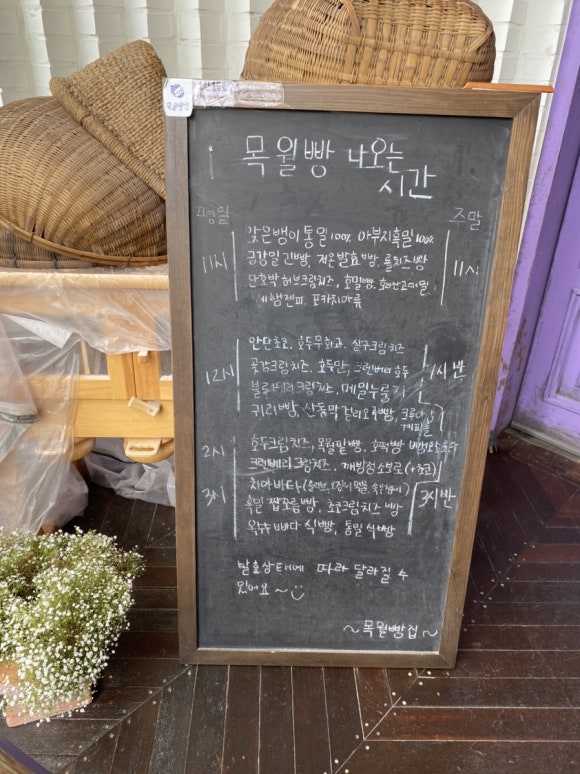 목월빵 나오는
시간
평일
주말
앉은뱅이통밀100% 아부지흑밀100%
금강밀 긴빵, 저온발효빵, 롤치즈빵
11시
11시
단호박 허브크림치즈, 호밀빵,
포카치아류
안단초코, 호두무화과, 살구크림치즈
12시
곶감크림치즈, 호두만, 크랜베리 호두
1시 반
블루베리크림치즈, 메밀누룽지
귀리빵, 산동막걸리오곡빵, 크루아상
2시
호두크림치즈, 목월밀빵, 호떡빵
크랜베리 크림치즈, 깨방정소보로 (+초코)
3시
치아바타
3시반
흑밀 짭쪼름빵, 초코크림치즈 빵
옥수수 빠다 식빵, 통밀 식빵
발효상태에 따라 달라질 수
있어요~
~목월빵집~